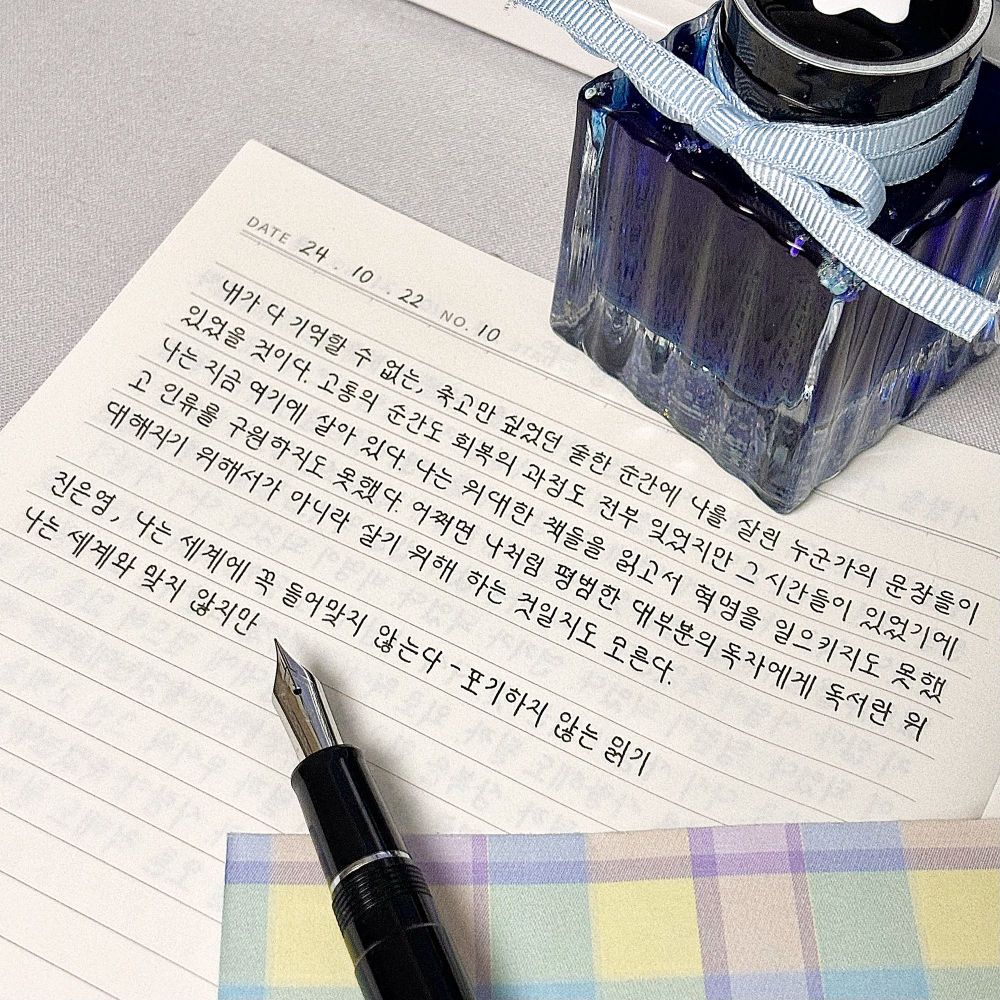 DATE 24 . 10 . 22 NO. 10
내가 다 기억할 수 없는, 죽고만 싶었던 숱한 순간에 나를 살린 누군가의 문장들이
있었을 것이다. 고통의 순간도 회복의 과정도 전부 잊었지만 그 시간들이 있었기에
나는 지금 여기에 살아 있다. 나는 위대한 책들을 읽고서 혁명을 일으키지도 못했
고 인류를 구원하지도 못했다. 어쩌면 나처럼 평범한 대부분의 독자에게 독서란 위
대해지기 위해서가 아니라 살기 위해 하는 것일지도 모른다.
진은영, 나는 세계에 꼭 들어맞지 않는다 - 포기하지 않는 읽기
나는 세계와 맞지 않지만